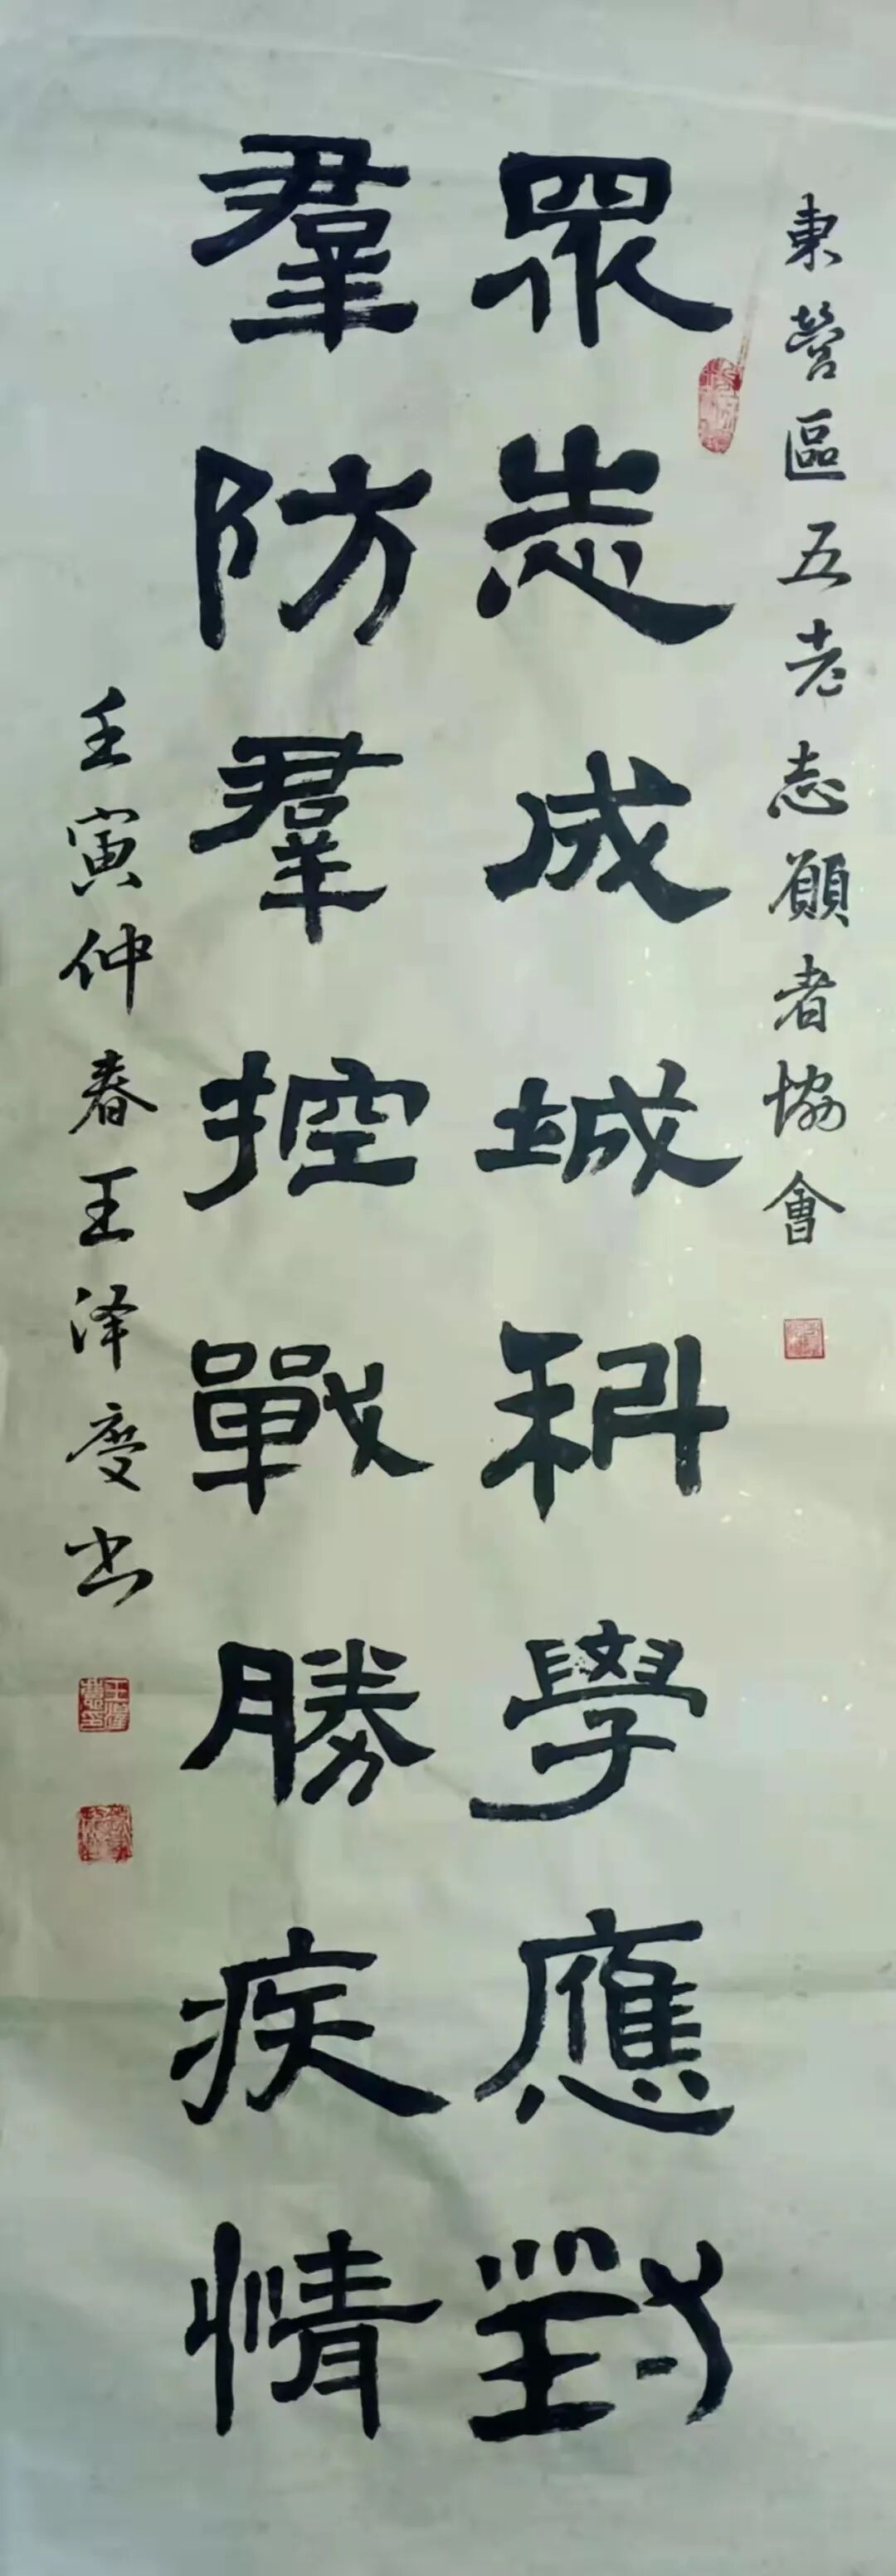 東營區五老志願者協會
眾志成城科學應對
羣防羣控戰勝疾情
壬寅仲春王泽慶书